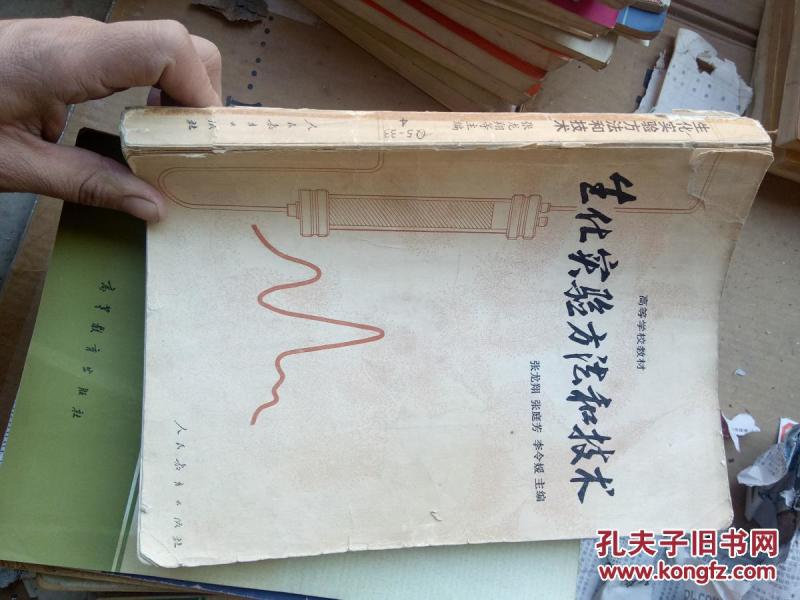 高等学校教材
生化实验方法和技术
张龙翔 张庭芳 李令媛 主编
人民教育出版社
生化实验方法和技术
张龙翔等主编
人民教育出版社
高等教育出版社
孔夫子旧书网
www.kongfz.com